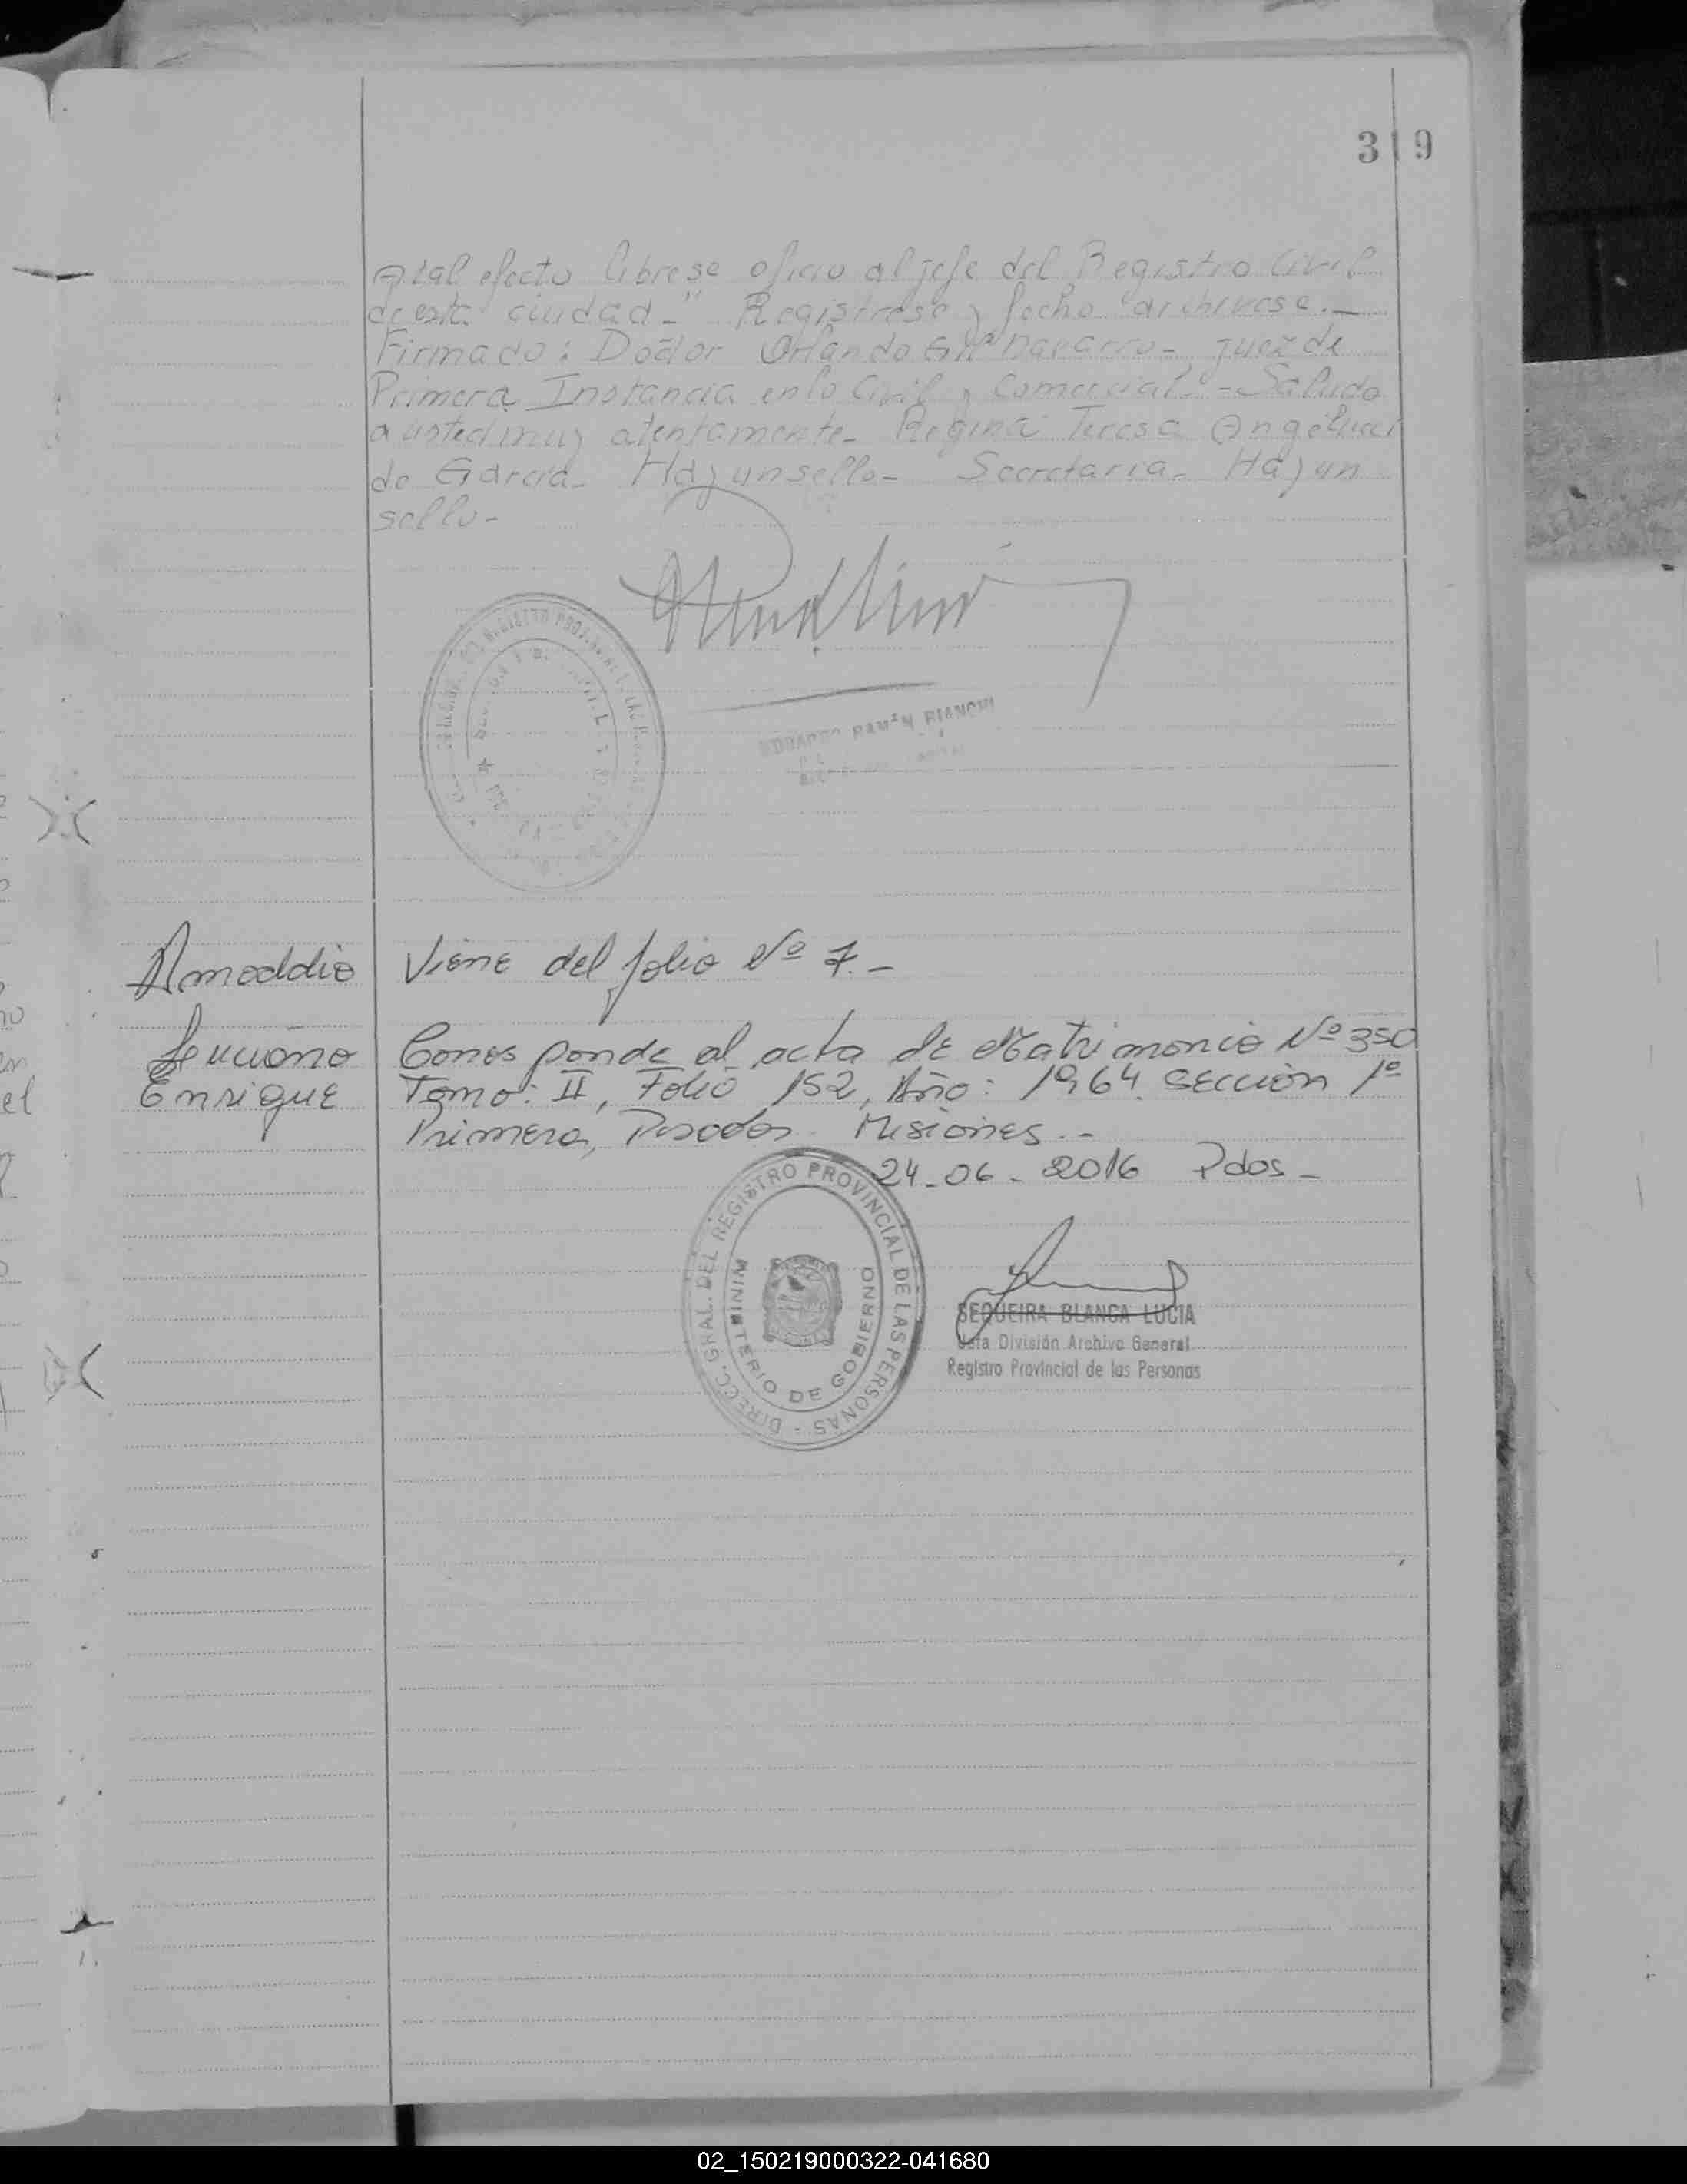 319
A tal efecto librese oficio al jefe del Registro Civil
de esta ciudad-" Registrese y fecho archivese.-
Firmado: Doctor Orlando Navarro- juez de
Primera Instancia en lo Civil y Comercial- Saludo
a usted muy atentamente- Regina Teresa Angelucci
de Garcia- Hay un sello- Secretaria- Hay un
sello-
RAMON BIANCHI
Amoddio Viene del folio Nº 7.-
Luciano Corresponde al acta de Matrimonio Nº 350
Enrique Tomo: II, Folio 152, Año: 1964. Sección 1º
Primera, Posadas Misiones.-
24-06-2016 Pdas-
DIRECC. GRAL. DEL REGISTRO PROVINCIAL DE LAS PERSONAS -
MINISTERIO DE GOBIERNO
SEQUEIRA BLANCA LUCIA
Jefa División Archivo General
Registro Provincial de las Personas
02_150219000322-041680